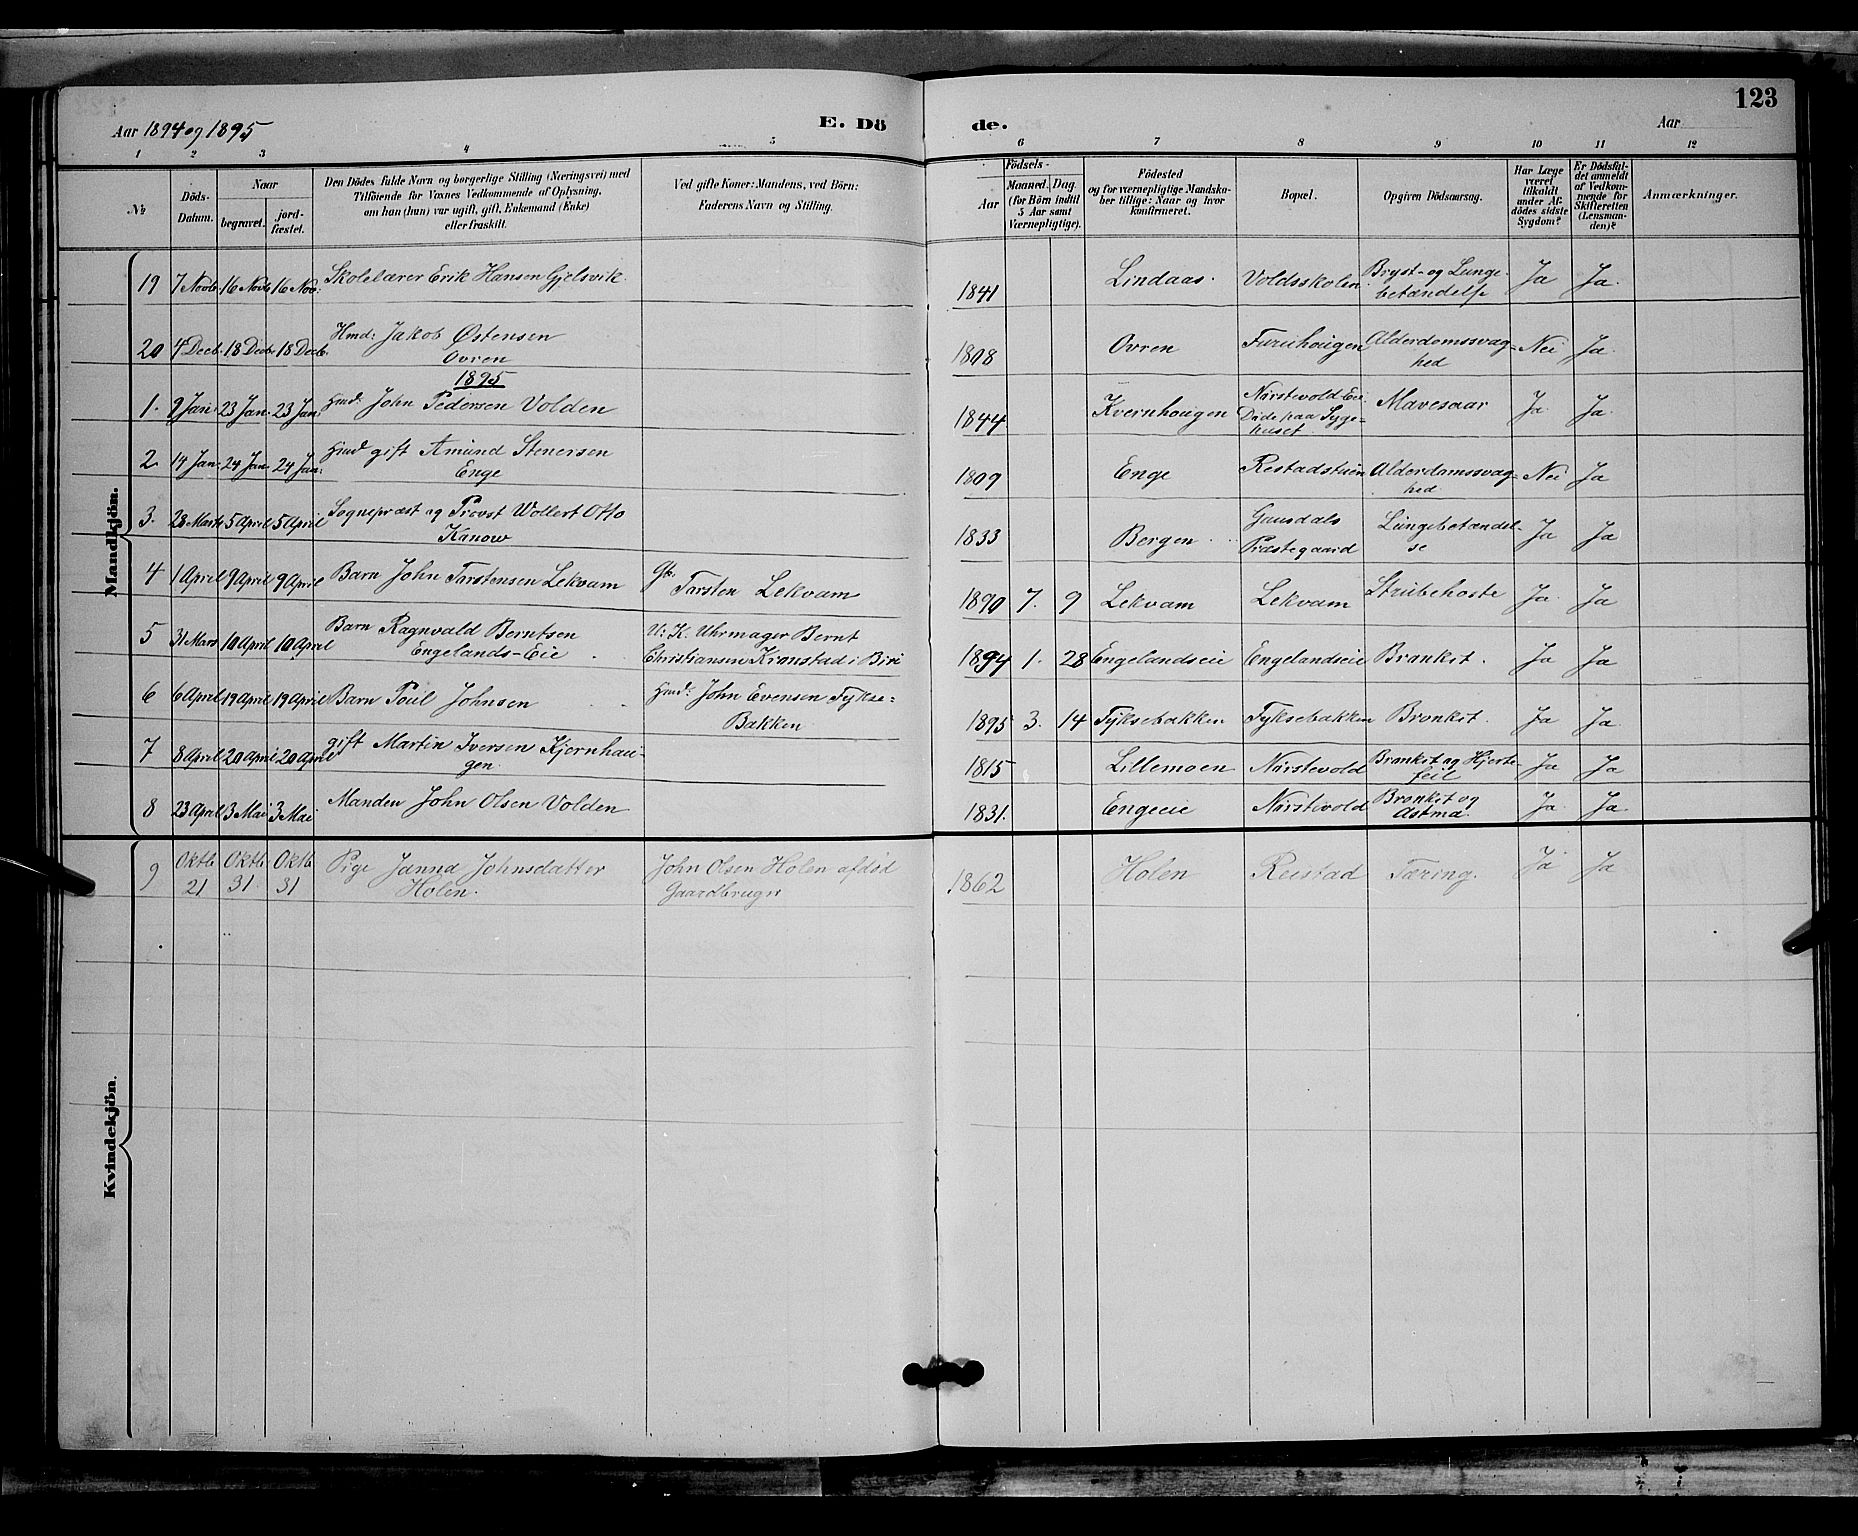 123
Aar 1894 og 1895
E. Dö
de.
Aar
1 2 3 4 5 6 7 8 9 10 11 12
№
Döds-
Datum.
Naar
begravet.
jord-
fæstet.
Den Dödes fulde Navn og borgerlige Stilling (Næringsvei) med
Tilföiende for Voxnes Vedkommende af Oplysning,
om han (hun) var ugift, gift, Enkemand (Enke)
eller fraskilt.
Ved gifte Koner: Mandens, ved Börn:
Faderens Navn og Stilling.
Födsels-
Aar
Maaned. Dag.
(for Börn indtil
5 Aar samt
Værnepligtige).
Födested
og for værnepligtige Mandska-
ber tillige: Naar og hvor
konfirmeret.
Bopæl.
Opgiven Dödsaarsag.
Har Læge
været
tilkaldt
under Af-
dödes sidste
Sygdom?
Er Dödsfal-
det anmeldt
af Vedkom-
mende for
Skifteretten
(Lensman-
den)?
Anmærkninger.
Mandkjön.
19 7 Novb. 16 Novb. 16 Nov: Skolelærer Erik Hansen Gjelsvik. 1841 Lindaas. Voldsskolen Bryst- og Lunge-
betændelse Ja Ja.
20 4 Decb. 18 Decb. 18 Decb. Hmd: Jakob Østensen
Ovren 1808 Ovren Furuhougen Alderdomssvag-
hed Nei Ja.
1895
1. 9 Jan. 23 Jan. 23 Jan. Hmd: John Pedersen Volden 1844 Kvernhougen Nörstevold Eie
Döde paa Syge-
huset. Mavesaar Ja Ja.
2 14 Jan. 24 Jan. 24 Jan. Hmd gift Amund Stenersen
Enge 1809 Enge Restadstuen Alderdomssvag-
hed Nei Ja
3. 28 Marts 5 April 5 April Sognepræst og Provst Wollert Otto
Kanow 1833 Bergen Gausdals
Præstegaard Lungebetændel-
se Ja Ja
4 1 April 9 April 9 April Barn John Torstensen Lekvam Gb. Torsten Lekvam 1890 7. 9 Lekvam Lekvam Strubehoste Ja. Ja
5 31 Mars 10 April 10 April Barn Ragnvald Berntsen
Engelands-Eie U: K. Uhrmager Bernt
Christiansen Kronstad i Biri 1894 1. 28 Engelandseie Engelandseie Bronkit. Ja Ja
6 6 April 19 April 19 April Barn Poul Johnsen Hmd: John Evensen Fykse-
Bakken 1895 3. 14 Fyksebakken Fyksebakken Bronkit. Ja Ja.
7 8 April 20 April 20 April gift Martin Iversen Kjørnhau-
gen. 1815 Lillemoen Nörstevold Bronkit og Hjerte-
feil Ja Ja
8 23 April 3 Mai 3 Mai Manden John Olsen Volden 1831. Engeeie Nörstevold Bronkit og
Astma. Ja. Ja.
Kvindekjön.
9 Oktb
21 Oktb
31. Oktb
31 Pige Janna Johnsdatter
Holen. John Olsen Holen afdöd
Gaardbruger 1862 Holen Reistad Tæring. Ja Ja